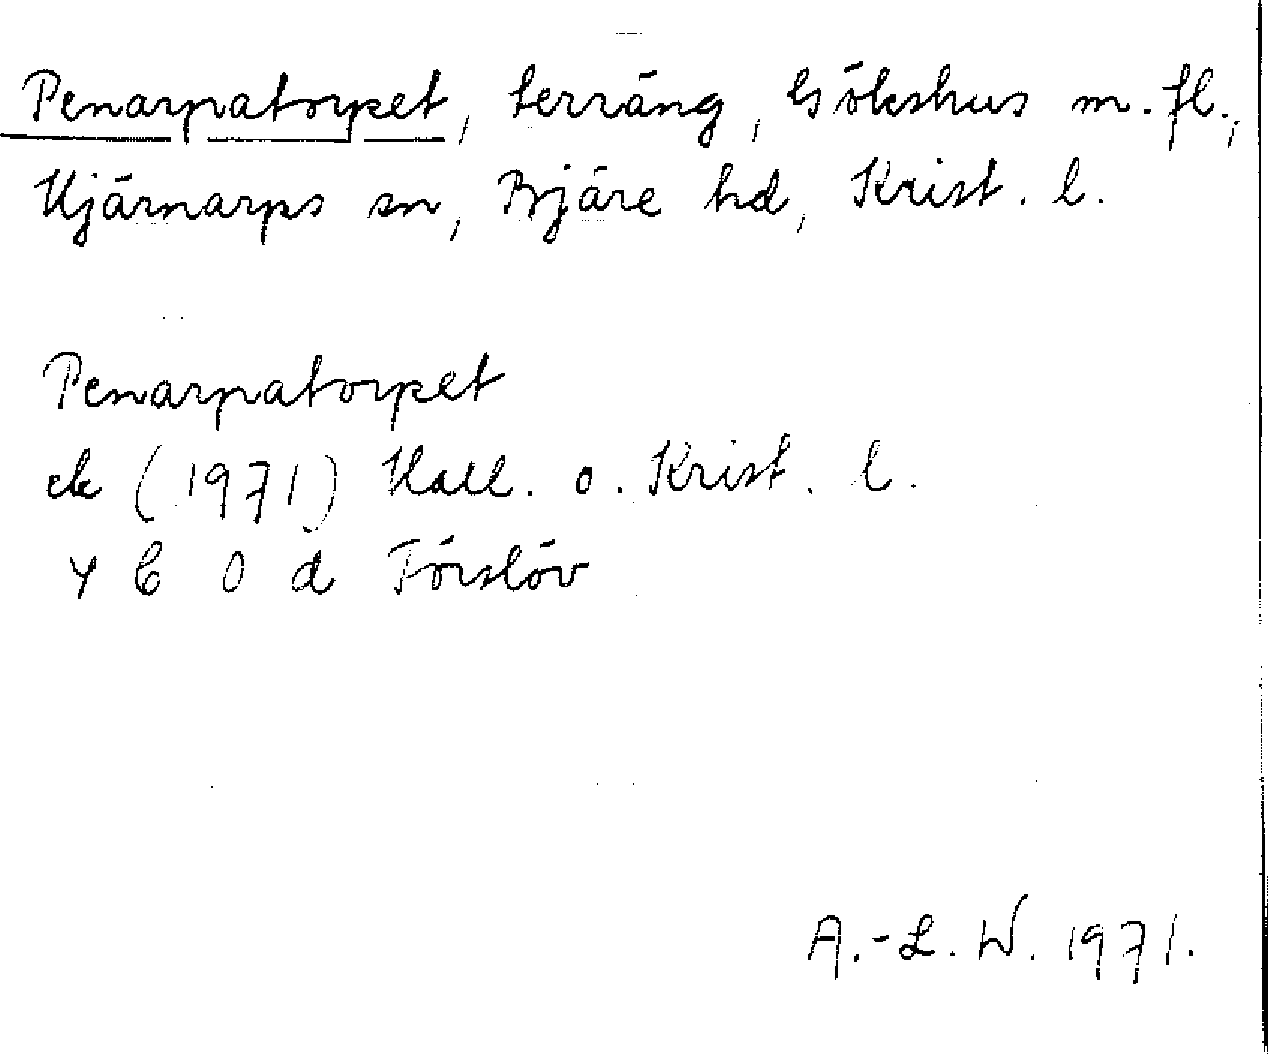 Penarpatorpet, terräng, Gökshus m. fl.,
Hjärnarps sn, Bjäre hd, Krist. l.
Penarpatorpet
ek (1971) Hall. o. Krist. l.
4 C 0 d Förslöv
A.-L. W. 1971.